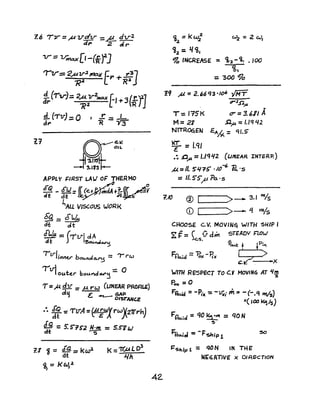 7.6 τv = μv dv/dr = μ/2 dv²/dr
v = vmax[1-(r/R)²]
τv = 2μv²max/R² [-r + r³/R²]
d/dr (τv) = 2μv²max/R² [-1+3(r/R)²]
d/dr (τv) = 0 , r/R = 1/√3
7.7
OIL
3.10
3.183
APPLY FIRST LAW OF THERMO
ALL VISCOUS WORK
δQ/dt = δWμ/dt
δWμ/dt = ∫τv| dA
Boundary
τv|inner boundary = τrω
τv|outer boundary = 0
τ = μ dv/dy = μrω/t (LINEAR PROFILE)
GAP DISTANCE
∴ δQ/dt = τvA = (μrω/t)(rω)(2πrh)
δQ/dt = 5.5752 N·m/s = 5.58 W
7.8 q = δQ/dt = Kω² K = πμLD³/4h
q₁ = Kω₁²
q₂ = Kω₂² ω₂ = 2ω₁
q₂ = 4q₁
% INCREASE = q₂-q₁/q₁ .100
= 300 %
7.9 μ = 2.6693·10⁻⁶ √MT/σ²Ωμ
T = 175K σ = 3.681 Å
M = 28 Ωμ = 1.1942
NITROGEN ε/k = 91.5
KT/ε = 1.91
∴ Ωμ = 1.1942 (LINEAR INTERP.)
7.10 ② 3.1 m/s
① 4 m/s
CHOOSE C.V. MOVING WITH SHIP 1
STEADY FLOW
Ffluid = Pout-Pin
WITH RESPECT TO CV MOVING AT 4 m/s
Pout = 0
Ffluid = 90 Kg·m/s² = 90 N
Ffluid = -Fship1 SO
Fship1 = 90N IN THE
NEGATIVE X DIRECTION
42